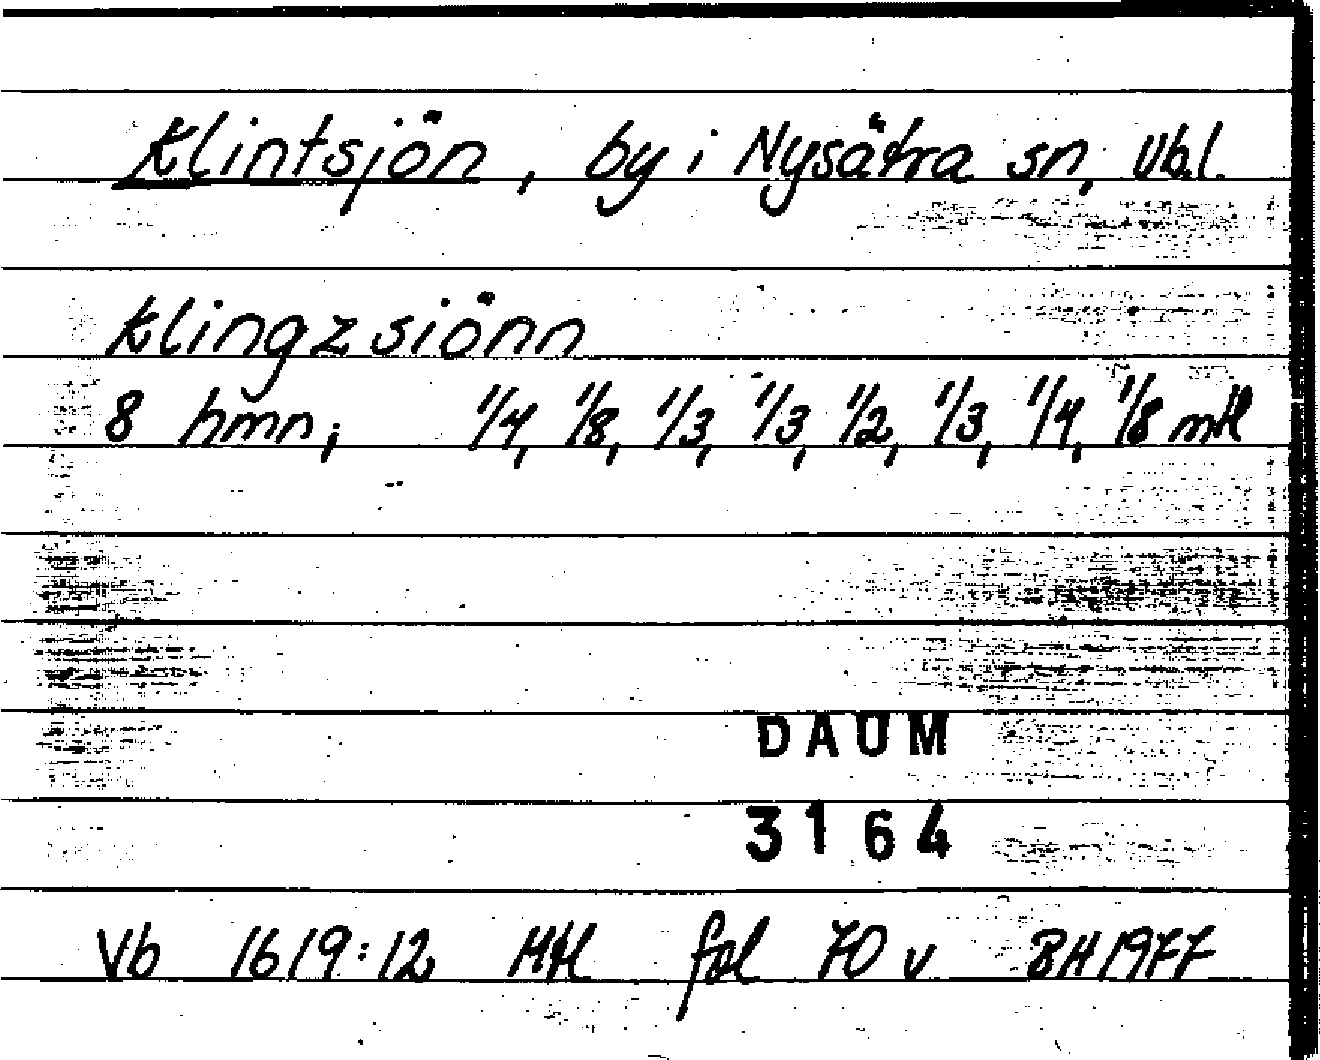 Klintsjön, by i Nysätra sn, Vb.l.
Klingzsiönn
8 hmn; 1/4, 1/8, 1/3, 1/3, 1/2, 1/3, 1/4, 1/8 mtl
DAUM
3164
Vb 1619:12 Mtl fol 70 v BH 1977